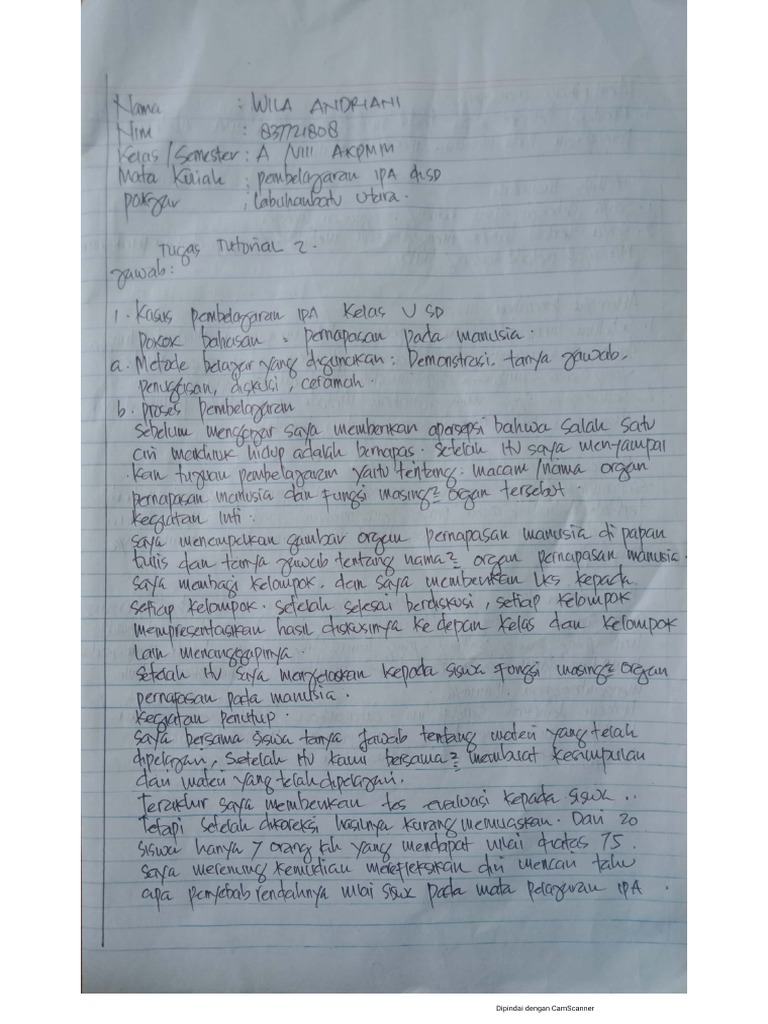 Nama : WILA ANDRIANI
Nim : 837721808
Kelas/Semester : A /VIII AKPMM
Mata Kuliah : pembelajaran IPA di SD
pokjar : Labuhanbatu Utara.
Tugas Tutorial 2.
Jawab:
1. Kasus pembelajaran IPA Kelas V SD
pokok bahasan : pernapasan pada manusia.
a. Metode belajar yang digunakan : Demonstrasi, tanya jawab,
penugasan, diskusi, ceramah.
b. Proses pembelajaran
Sebelum mengajar saya memberikan apersepsi bahwa salah satu
ciri makhluk hidup adalah bernapas. Setelah itu saya menyampai
kan tujuan pembelajaran yaitu tentang : macam/nama organ
pernapasan manusia dan fungsi masing² organ tersebut.
kegiatan Inti :
saya menempelkan gambar organ pernapasan manusia di papan
tulis dan tanya jawab tentang nama² organ pernapasan manusia.
saya membagi kelompok, dan saya memberikan LKS kepada
setiap kelompok. Setelah selesai berdiskusi, setiap kelompok
mempresentasikan hasil diskusinya ke depan kelas dan kelompok
lain menanggapinya.
Setelah itu saya menjelaskan kepada siswa fungsi masing² organ
pernapasan pada manusia.
kegiatan penutup.
saya bersama siswa tanya jawab tentang materi yang telah
dipelajari, setelah itu kami bersama² membuat kesimpulan
dari materi yang telah dipelajari.
Terakhir saya memberikan tes evaluasi kepada siswa ..
Tetapi setelah dikoreksi hasilnya kurang memuaskan. Dari 20
siswa hanya 7 orang lah yang mendapat nilai diatas 75.
saya merenung kemudian merefleksikan diri mencari tahu
apa penyebab rendahnya nilai siswa pada mata pelajaran IPA.
Dipindai dengan CamScanner